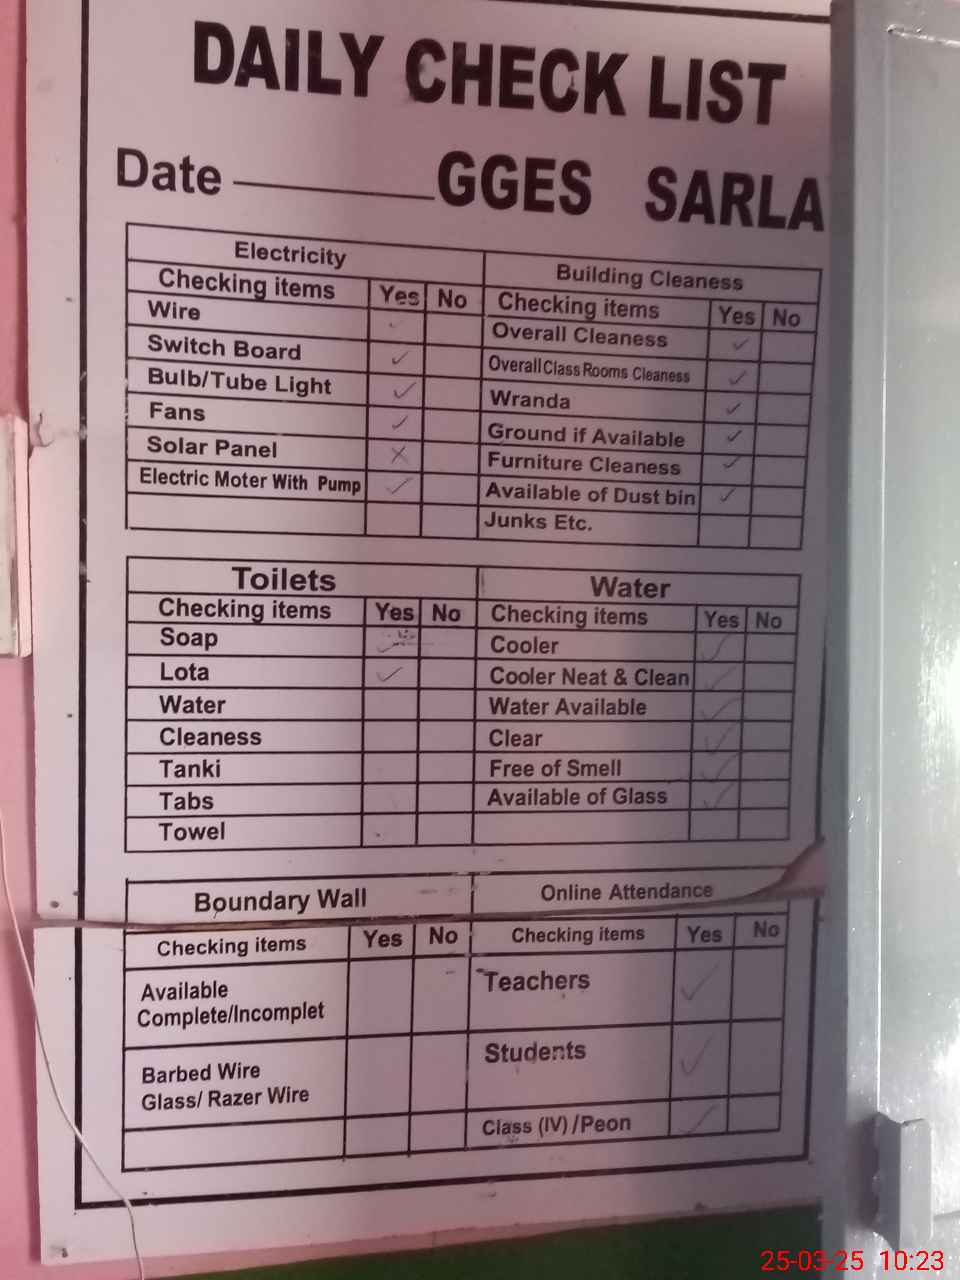 DAILY CHECK LIST
Date GGES SARLA
Electricity
Checking items Yes No
Wire
Switch Board ✓
Bulb/Tube Light ✓
Fans ✓
Solar Panel ×
Electric Moter With Pump ✓
Building Cleaness
Checking items Yes No
Overall Cleaness ✓
Overall Class Rooms Cleaness ✓
Wranda ✓
Ground if Available ✓
Furniture Cleaness ✓
Available of Dust bin ✓
Junks Etc.
Toilets
Checking items Yes No
Soap ✓
Lota ✓
Water
Cleaness
Tanki
Tabs
Towel
Water
Checking items Yes No
Cooler ✓
Cooler Neat & Clean ✓
Water Available ✓
Clear ✓
Free of Smell ✓
Available of Glass ✓
Boundary Wall
Checking items Yes No
Available
Complete/Incomplet
Barbed Wire
Glass/ Razer Wire
Online Attendance
Checking items Yes No
Teachers ✓
Students ✓
Class (IV) /Peon ✓
25-03-25 10:23